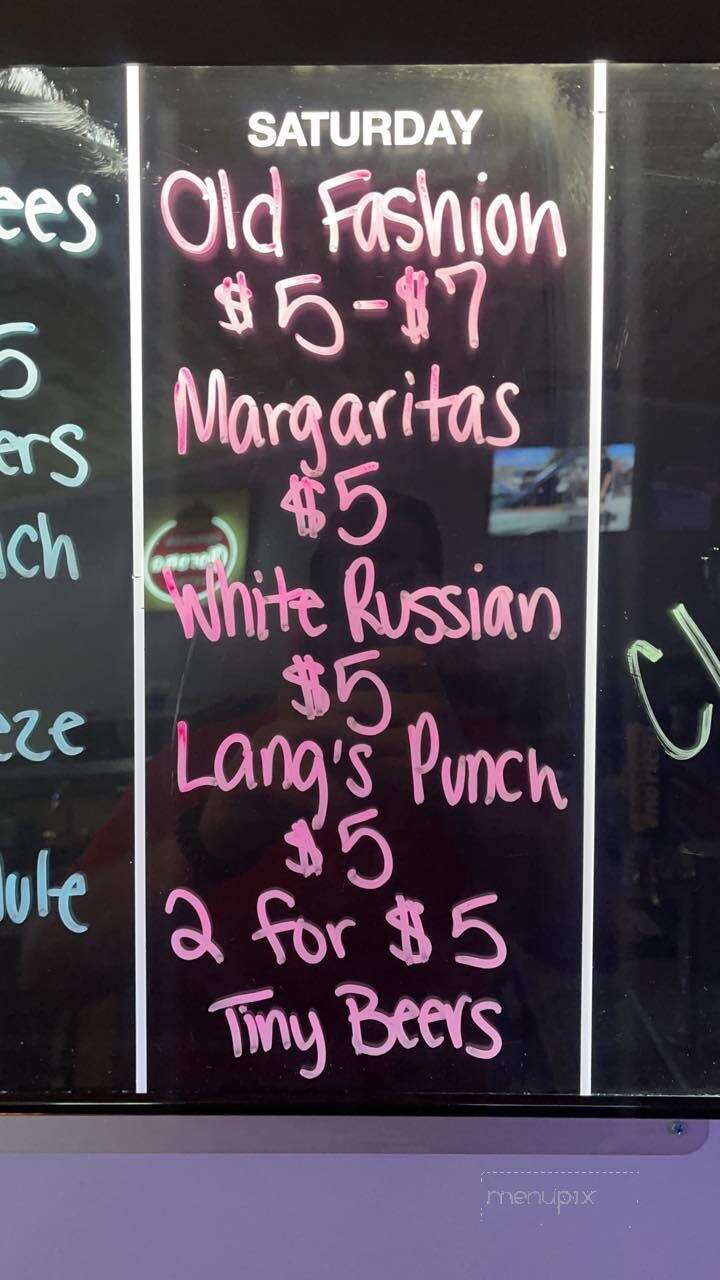 SATURDAY
Old Fashion
$5-$7
Margaritas
$5
White Russian
$5
Lang's Punch
$5
2 for $5
Tiny Beers
ees
5
ers
ch
eze
lule
Cl
menupix